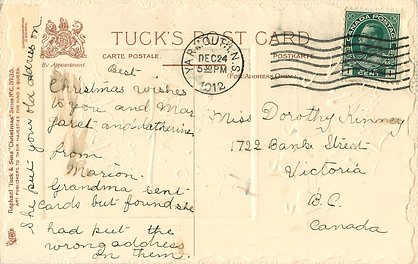 TUCK'S POST CARD
CARTE POSTALE.
POSTKARTE.
By Appointment.
(FOR ADDRESS ONLY)
YARMOUTH N.S.
DEC 24
5 30 PM
1912
CANADA POSTAGE
1 CENT 1
Best
Christmas wishes
to you and Mar
garet and Catherine,
from
Marion.
Grandma sent
cards but found she
had put the
wrong address
on them.
She put your old address on
Miss Dorothy Kinney
1722 Bank Street
Victoria
B.C.
Canada
Raphael Tuck & Sons "Christmas" Series
ART PUBLISHERS TO THEIR MAJESTIES THE KING & QUEEN.